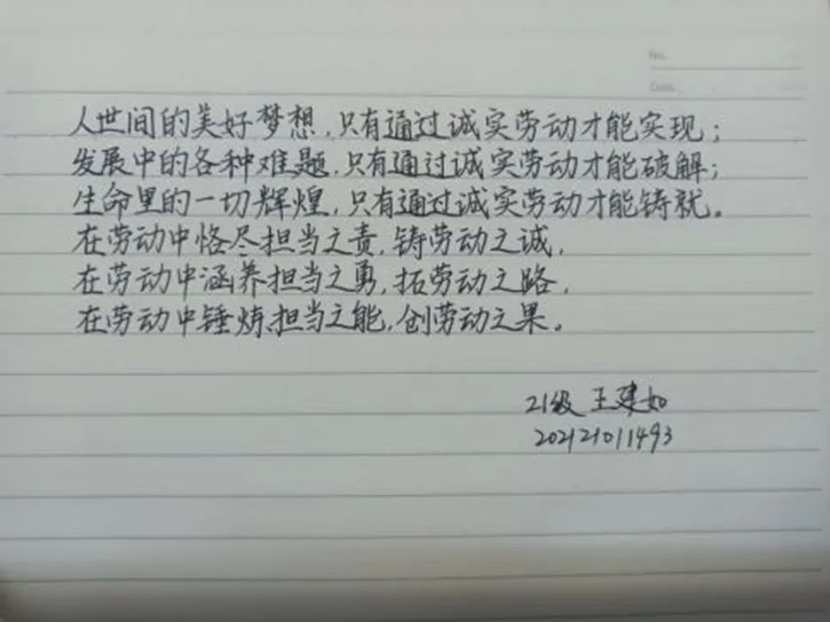 No.
Date
人世间的美好梦想,只有通过诚实劳动才能实现;
发展中的各种难题,只有通过诚实劳动才能破解;
生命里的一切辉煌,只有通过诚实劳动才能铸就。
在劳动中恪尽担当之责,铸劳动之诚,
在劳动中涵养担当之勇,拓劳动之路,
在劳动中锤炼担当之能,创劳动之果。
21级 王建如
202121011493